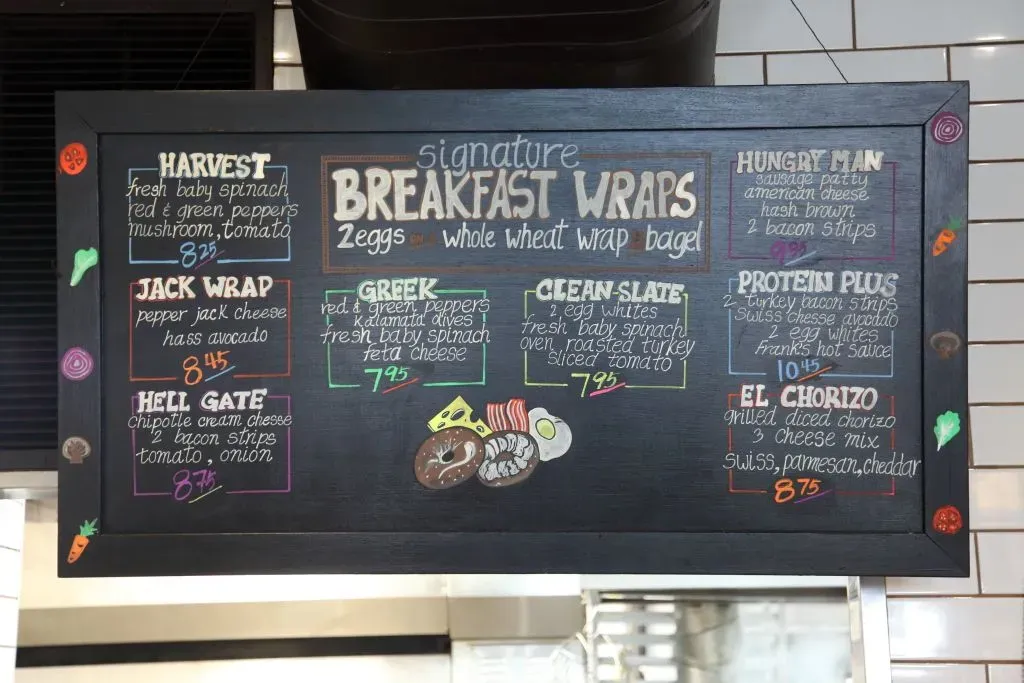 signature
BREAKFAST WRAPS
2eggs on a whole wheat wrap or bagel
HARVEST
fresh baby spinach
red & green peppers
mushroom, tomato
8.25
JACK WRAP
pepper jack cheese
hass avocado
8.45
HELL GATE
chipotle cream cheese
2 bacon strips
tomato, onion
8.75
GREEK
red & green peppers
kalamata olives
fresh baby spinach
feta cheese
7.95
CLEAN SLATE
2 egg whites
fresh baby spinach
oven roasted turkey
sliced tomato
7.95
HUNGRY MAN
sausage patty
american cheese
hash brown
2 bacon strips
PROTEIN PLUS
2 turkey bacon strips
swiss cheese avocado
2 egg whites
Frank's hot sauce
10.45
EL CHORIZO
grilled diced chorizo
3 cheese mix
swiss, parmesan, cheddar
8.75